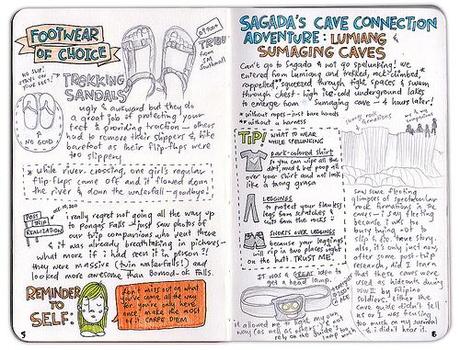 FOOTWEAR
OF CHOICE
TREKKING
SANDALS
ugly & awkward but they do
a great job of protecting your
feet & providing traction — others
had to remove their slippers & hike
barefoot as their flip-flops were
too slippery
NO GOOD
while river crossing, one girl's regular
flip-flops came off and it flowed down
the river & down the waterfall — goodbye!
POST
TRIP
REALIZATION
I really regret not going all the way up
to Pongas Falls — just saw photos of
our trip companions who went there
& it was already breathtaking in pictures —
what more if I had seen it in person?!
They were massive (twin waterfalls!) and
looked more awesome than Bomod-ok falls.
REMINDER
TO
SELF:
Don't miss out on what
you've come all the way
for you're only here
once! make the most
of it CARPE DIEM
5
SAGADA'S CAVE CONNECTION
ADVENTURE: LUMIANG &
SUMAGING CAVES
Can't go to Sagada & not go spelunking! we
entered from Lumiang and trekked, rock-climbed,
rappelled, squeezed through tight spaces & swam
through chest-high ice-cold underground lakes
to emerge from Sumaging cave — 4 hours later!
• without ropes — just bare hands
• without a harness
TIP!
WHAT TO WEAR
WHILE SPELUNKING
dark-colored shirt
so you can wipe all the
dirt, mud & bat poop all
over your shirt and not look
like a taong grasa
LEGGINGS
to protect your flawless
legs from scratches &
cuts from the rocks
SHORTS OVER LEGGINGS
because your leggings
will rip in two places
on the butt. TRUST ME!
saw some fleeting
glimpses of spectacular
rock formations in the
caves — I say fleeting
because I was too
busy trying not to
slip & die. true story.
also, it's only just now,
after some post-trip
research, did I learn
that these caves were
used as hideouts during
WW II by Filipino
soldiers. either the
cave guide didn't tell
us or I was focusing
too much on my survival
& I didn't hear it.
It was a GREAT idea to
get a head lamp.
it allowed me to light my own
way (as well as others') & not
rely on the guide's
6